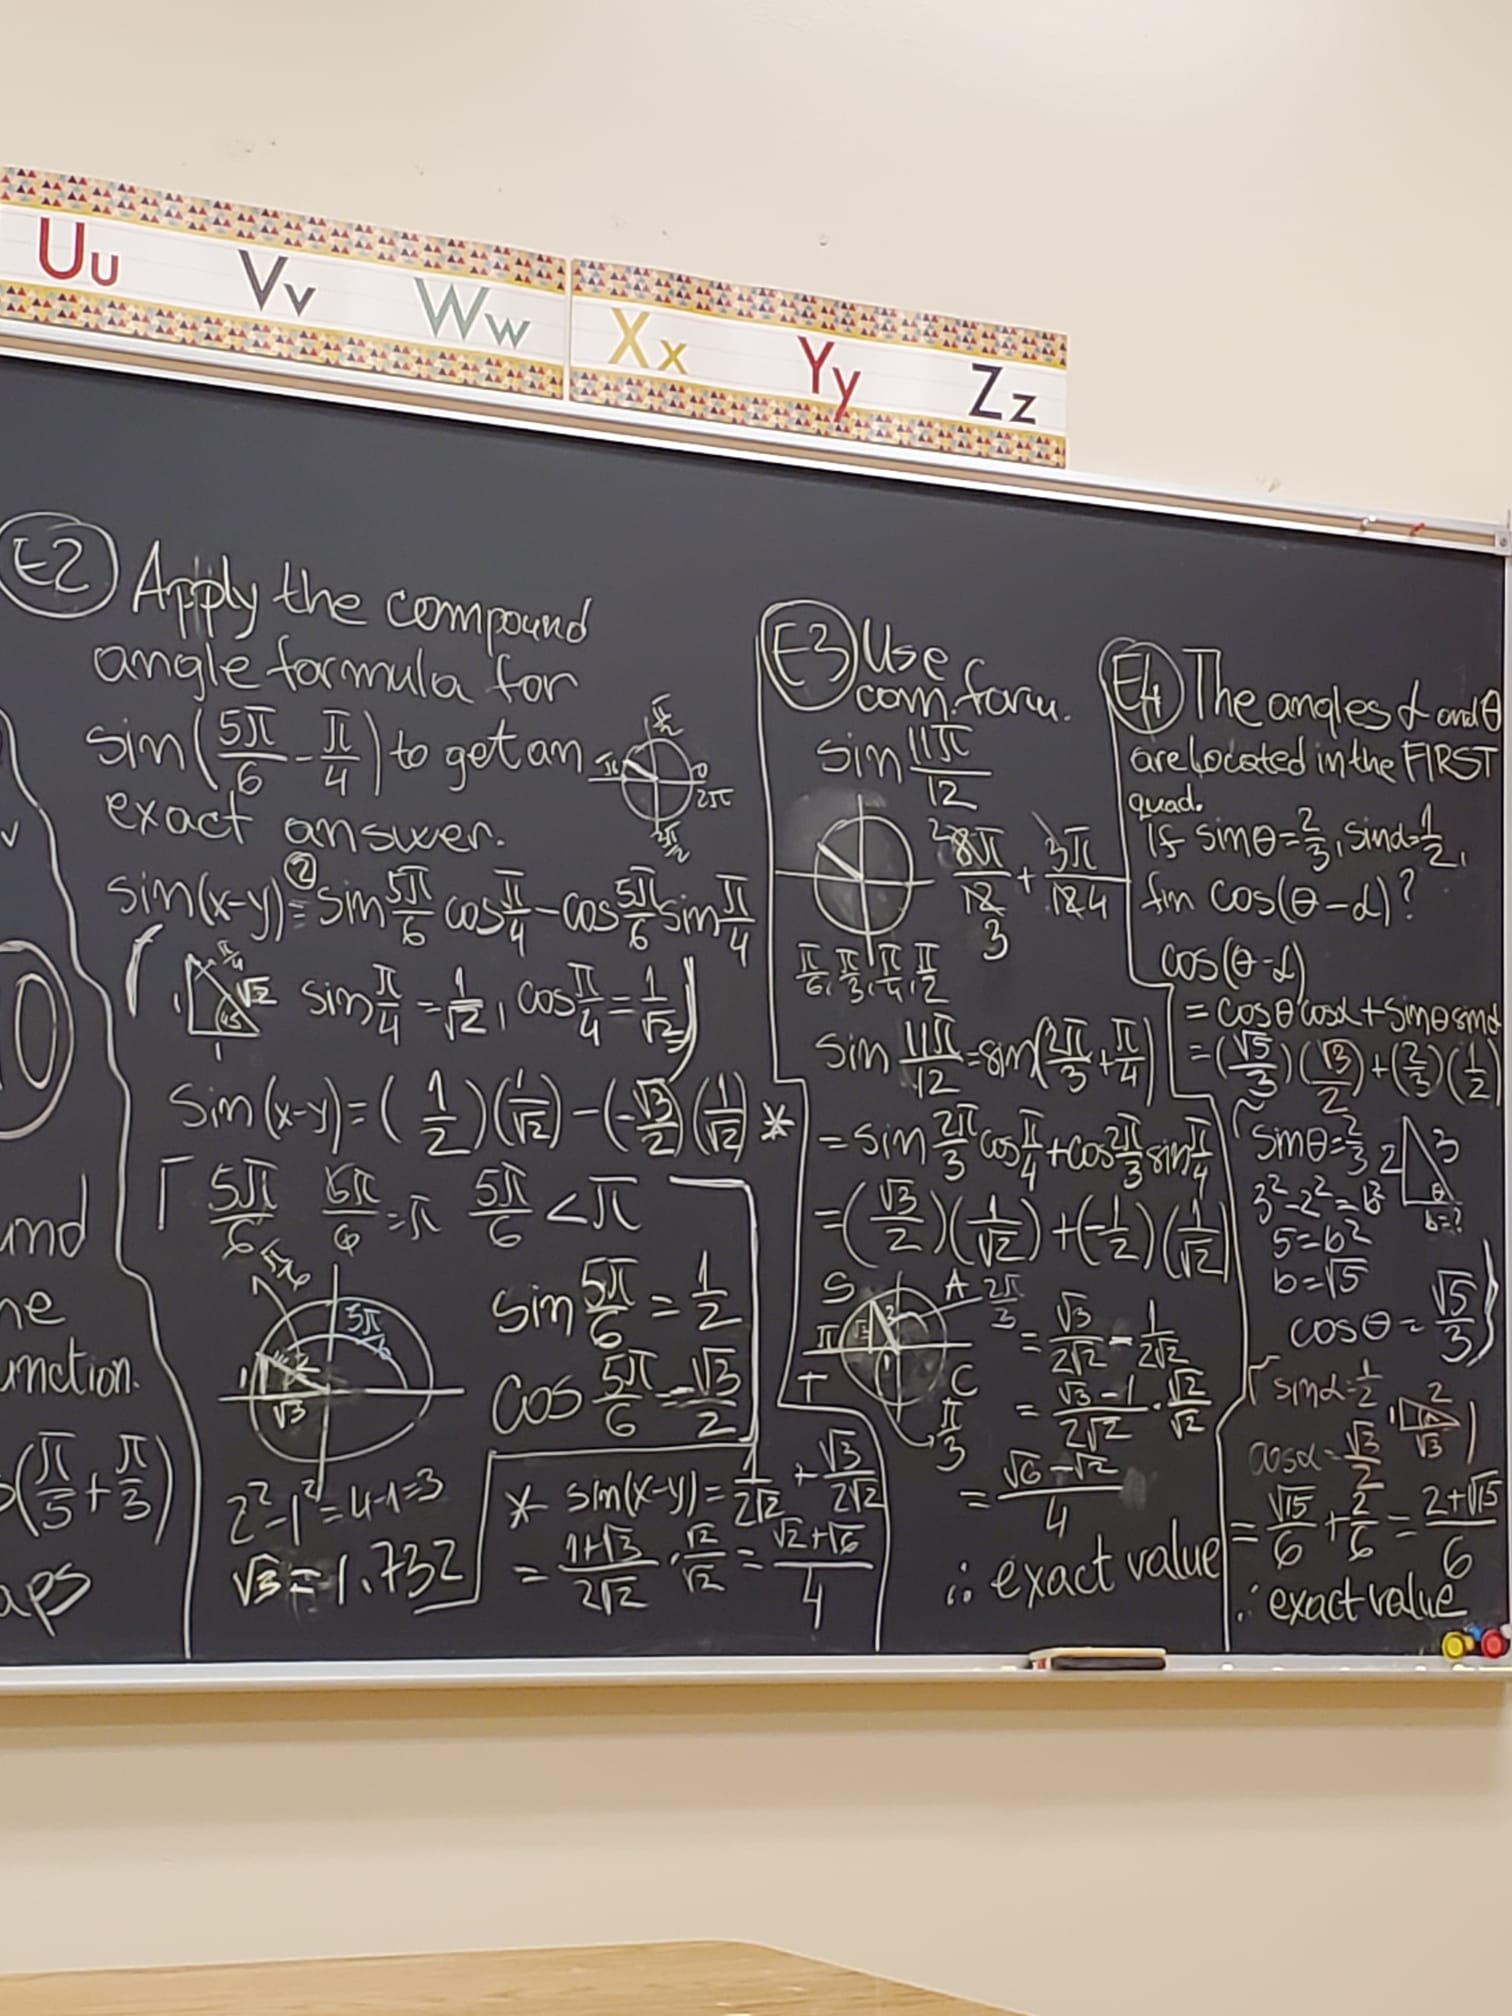 Uu Vv Ww Xx Yy Zz
E2 Apply the compound
angle formula for
sin(5π/6 - π/4) to get an
exact answer.
π/2
π
0
2π
3π/2
sin(x-y) = sin 5π/6 cos π/4 - cos 5π/6 sin π/4
π/4
1
√2
45
1
sin π/4 = 1/√2, cos π/4 = 1/√2
sin(x-y) = (1/2)(1/√2) - (-√3/2)(1/√2) *
5π/6 6π/6 = π 5π/6 < π
5π/6
5π
1
√3
sin 5π/6 = 1/2
cos 5π/6 = -√3/2
2² - 1² = 4-1 = 3
√3 = 1.732
* sin(x-y) = 1/2√2 + √3/2√2
= 1+√3/2√2 · √2/√2 = √2+√6/4
E3 Use
com. form.
sin 11π/12
2 8π/12 3 + 3π/12 4
π/6, π/3, π/4, π/2
sin 11π/12 = sin(2π/3 + π/4)
= sin 2π/3 cos π/4 + cos 2π/3 sin π/4
= (√3/2)(1/√2) + (-1/2)(1/√2)
S A 2π/3
π
T C
π/3
= √3/2√2 - 1/2√2
= √3-1/2√2 · √2/√2
= √6-√2/4
∴ exact value
E4 The angles α and θ
are located in the FIRST
quad.
If sinθ = 2/3, sinα = 1/2,
fin cos(θ-α)?
cos(θ-α)
= cosθ cosα + sinθ sinα
= (√5/3)(√3/2) + (2/3)(1/2)
sinθ = 2/3
2 3
θ
b=?
3² - 2² = b²
5 = b²
b = √5
cosθ = √5/3
sinα = 1/2
1 2
√3
cosα = √3/2
= √15/6 + 2/6 = 2+√15/6
∴ exact value
und
he
unction.
(π/5 + π/3)
aps